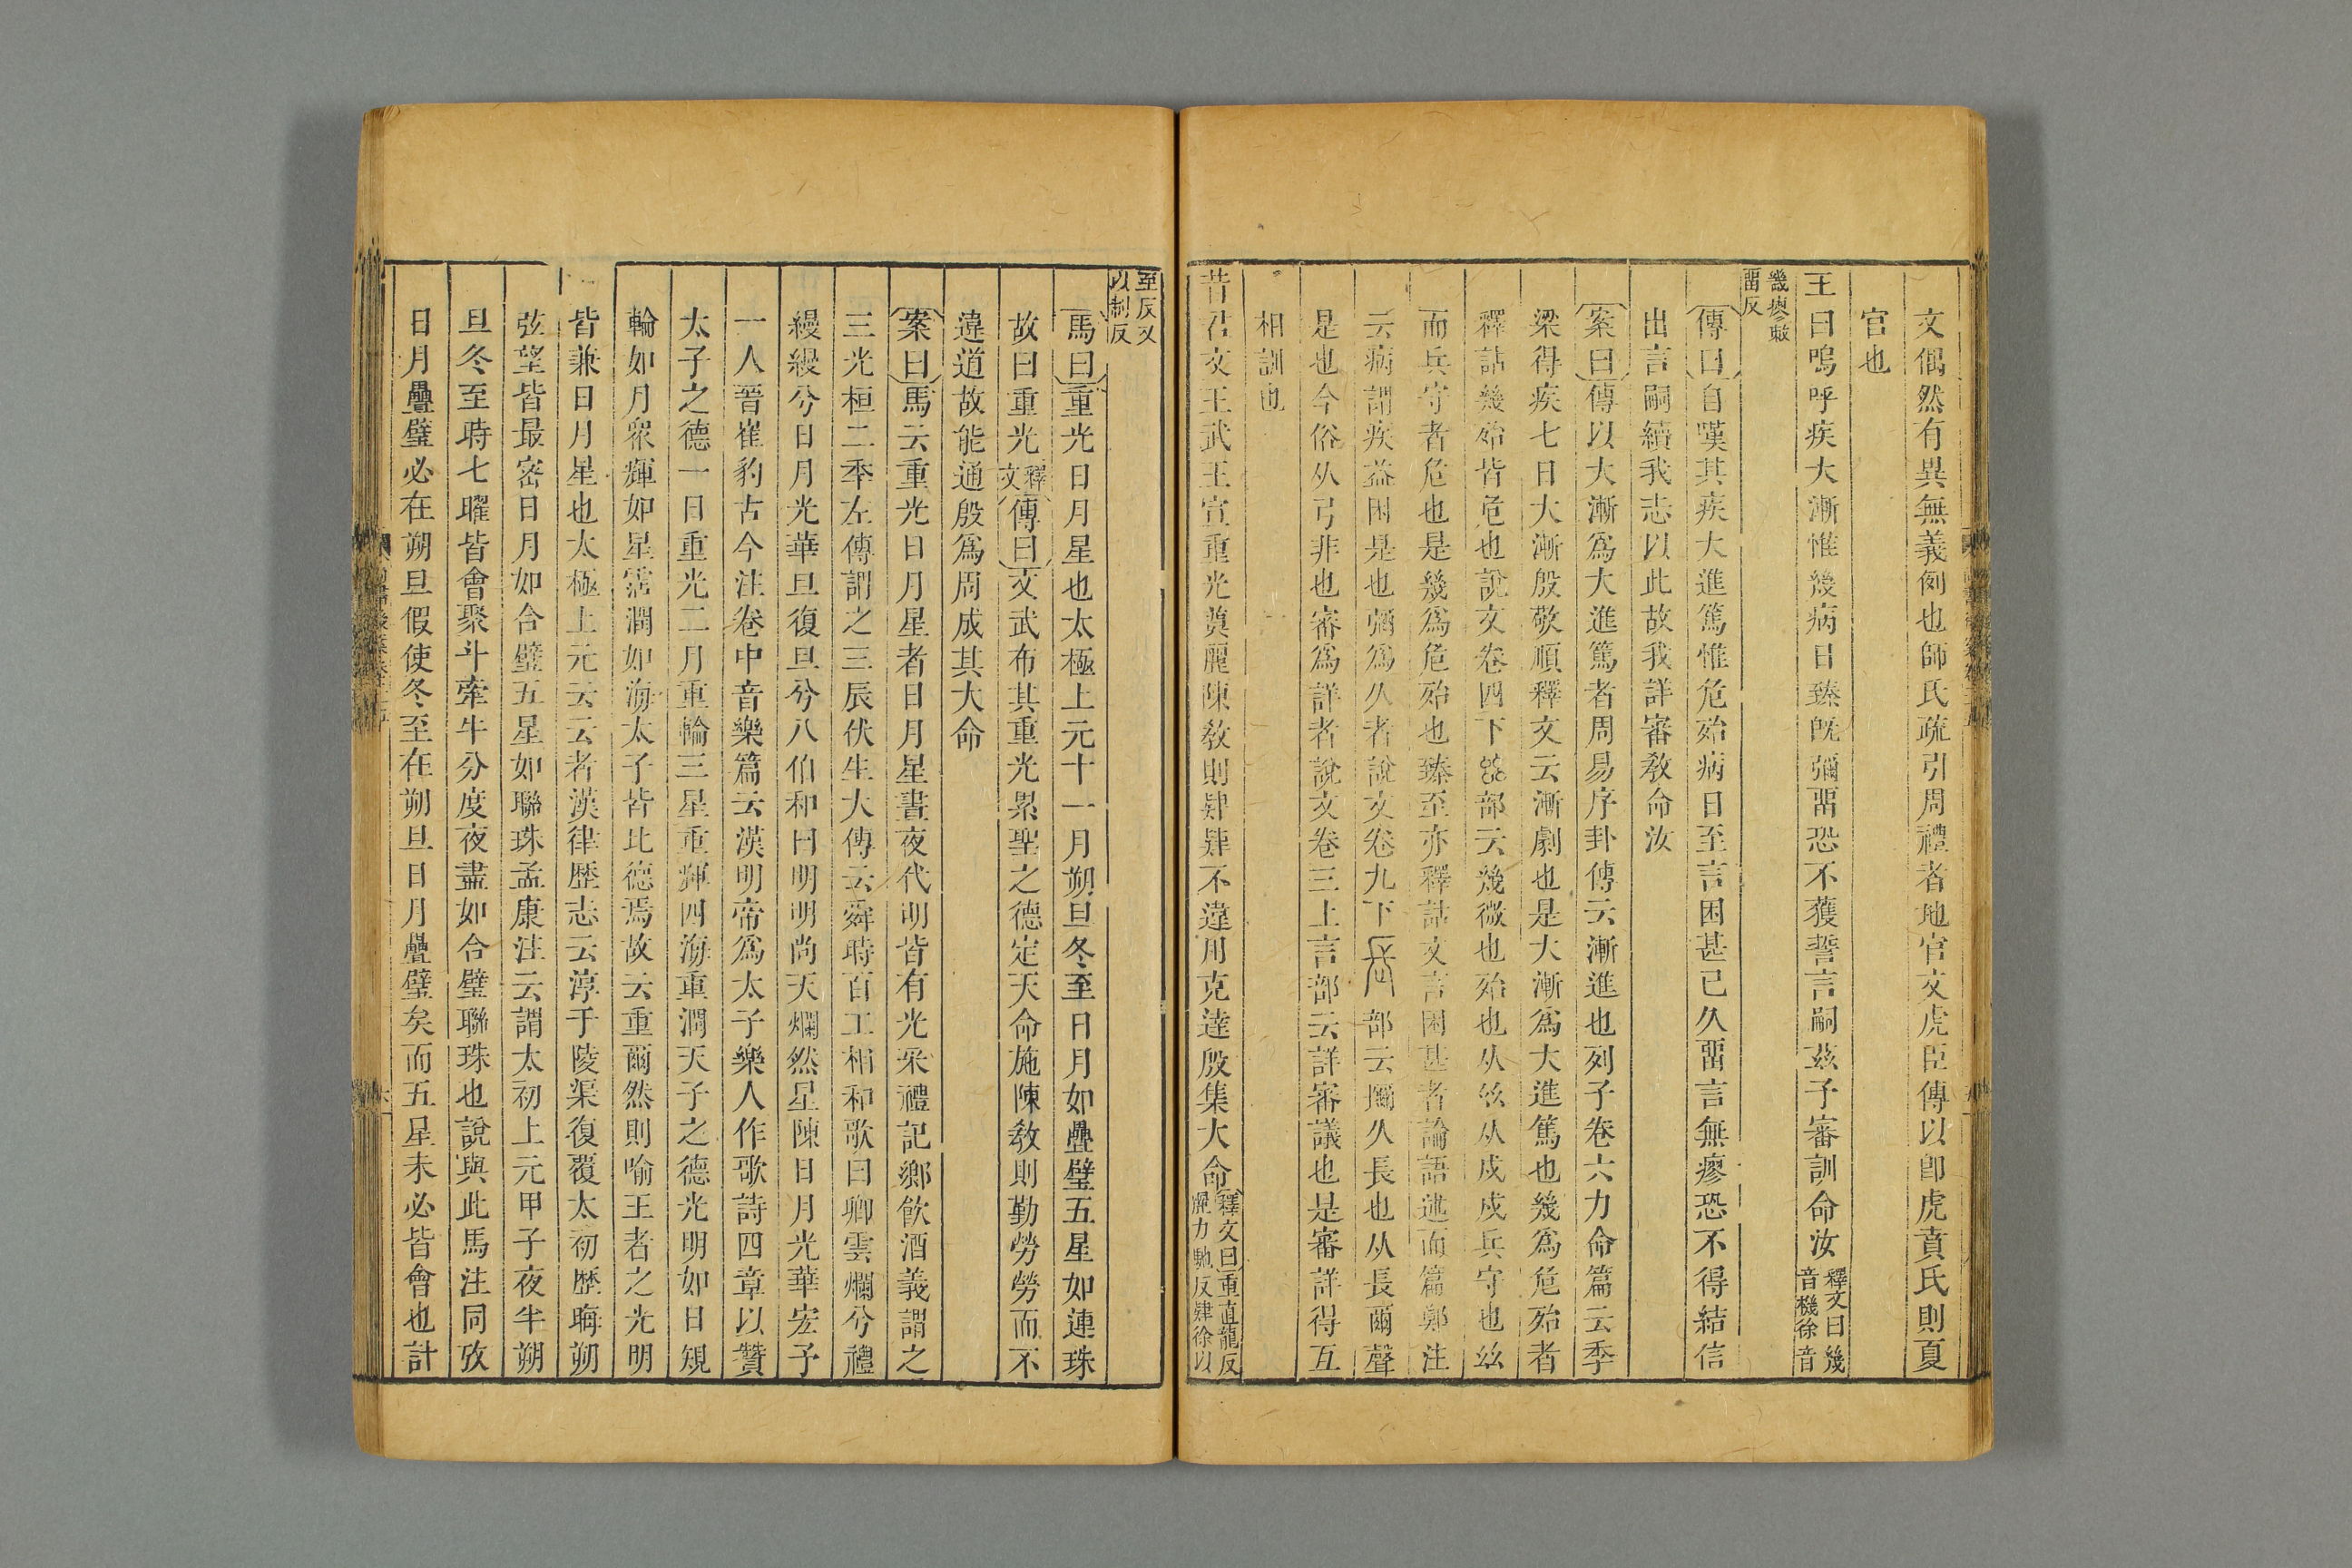 文偶然有異無義例也師氏疏引周禮者地官文虎臣傳以卽虎賁氏則夏
官也
王曰嗚呼疾大漸惟幾病日臻旣彌畱恐不獲誓言嗣茲予審訓命汝釋文曰幾音機徐音
畿瘳敕畱反
傳曰自嘆其疾大進篤惟危殆病日至言困甚已久畱言無瘳恐不得結信
出言嗣續我志以此故我詳審敎命汝
案曰傳以大漸爲大進篤者周易序卦傳云漸進也列子卷六力命篇云季
梁得疾七日大漸殷敬順釋文云漸劇也是大漸爲大進篤也幾爲危殆者
釋詁幾殆皆危也說文卷四下𢆶部云幾微也殆也从𢆶从戍戍兵守也𢆶
而兵守者危也是幾爲危殆也臻至亦釋詁文言困甚者論語述而篇鄭注
云病謂疾益困是也彌爲久者說文卷九下部云镾久長也从長爾聲
是也今俗从弓非也審爲詳者說文卷三上言部云詳審議也是審詳得互
相訓也
昔君文王武王宣重光奠麗陳敎則肄肄不違用克達殷集大命釋文曰重直龍反麗力馳反肄徐以
至反又以制反
馬曰重光日月星也太極上元十一月朔旦冬至日月如疊璧五星如連珠
故曰重光釋文傳曰文武布其重光累聖之德定天命施陳敎則勤勞勞而不
違道故能通殷爲周成其大命
案曰馬云重光日月星者日月星晝夜代明皆有光采禮記鄉飮酒義謂之
三光桓二季左傳謂之三辰伏生大傳云舜時百工相和歌曰卿雲爛兮禮
縵縵兮日月光華旦復旦兮八伯和曰明明尚天爛然星陳日月光華宏予
一人晉崔豹古今注卷中音樂篇云漢明帝爲太子樂人作歌詩四章以贊
太子之德一曰重光二月重輪三星重輝四海重潤天子之德光明如日規
輪如月衆輝如星霑潤如海太子皆比德焉故云重爾然則喻王者之光明
皆兼日月星也太極上元云云者漢律歷志云淳于陵渠復覆太初歷晦朔
弦望皆最密日月如合璧五星如聯珠孟康注云謂太初上元甲子夜半朔
旦冬至時七曜皆會聚斗牽牛分度夜盡如合璧聯珠也說與此馬注同攷
日月疊璧必在朔旦假使冬至在朔旦日月疊璧矣而五星未必皆會也計